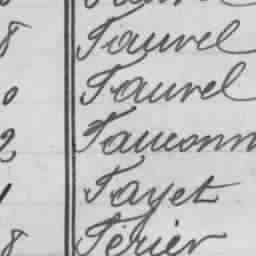 8 Faurel
0 Faurel
2 Fauconn
1 Fayet
8 Férier